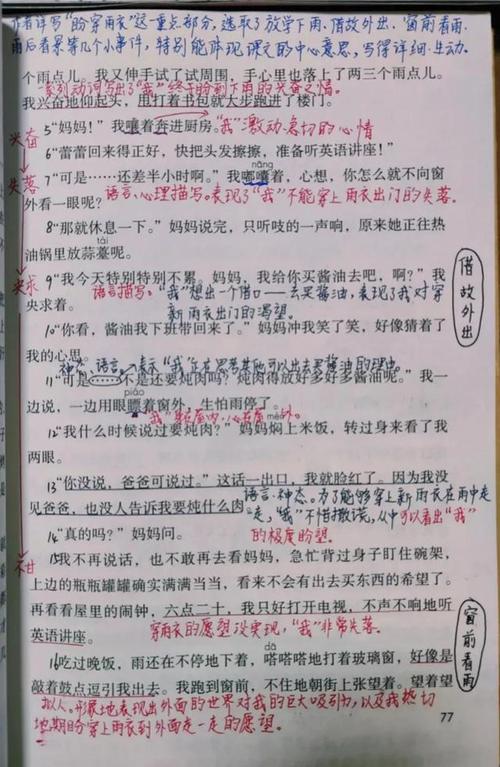 作者详写“盼穿雨衣”这一重点部分，选取了放学下雨、借故外出、窗前看雨、
雨后看景等几个小事件，特别能体现课文的中心意思，写得详细、生动。
个雨点儿。我又伸手试了试周围，手心里也落上了两三个雨点儿。
一系列动词写出了“我”终于盼到下雨的兴奋之情。
我兴奋地仰起头，甩打着书包就大步跑进了楼门。
兴奋
5“妈妈！”我嚷着奔进厨房。“我”激动急切的心情
6“蕾蕾回来得正好，快把头发擦擦，准备听英语讲座！”
失落
nāng
7“可是……还差半小时啊。”我嘟囔着，心想，你怎么就不向窗
外看一眼呢？语言、心理描写。表现了“我”不能穿上雨衣出门的失落。
8“那就休息一下。”妈妈说完，只听吱的一声响，原来她正往热
tái
油锅里放蒜薹呢。
央求
9“我今天特别特别不累。妈妈，我给你买酱油去吧，啊？”我
央求着。语言描写。“我”想出一个借口——去买酱油，表现了我对穿
新雨衣出门的渴望。
借故外出
10“你看，酱油我下班带回来了。”妈妈冲我笑了笑，好像猜着了
我的心思。
神态、语言。表示“我”正在思考其他可以出去买酱油的理由。
11“可是……不是还要炖肉吗？炖肉得放好多好多酱油呢。”我一
piǎo
边说，一边用眼瞟着窗外，生怕雨停了。
“我”身在屋内，心在屋外。
12“我什么时候说过要炖肉？”妈妈焖上米饭，转过身来看了我
两眼。
13“你没说，爸爸可说过。”这话一出口，我就脸红了。因为我没
见爸爸，也没人告诉我要炖什么肉。
语言、神态。为了能够穿上新雨衣在雨中走
一走，“我”不惜撒谎，从中可以看出“我”
的极度盼望。
14“真的吗？”妈妈问。
15我不再说话，也不敢再去看妈妈，急忙背过身子盯住碗架，
上边的瓶瓶罐罐确实满满当当，看来不会有出去买东西的希望了。
再看看屋里的闹钟，六点二十，我只好打开电视，不声不响地听
英语讲座。穿雨衣的愿望没实现，“我”非常失落。
窗前看雨
dā
16吃过晚饭，雨还在不停地下着，嗒嗒嗒地打着玻璃窗，好像是
敲着鼓点逗引我出去。我跑到窗前，不住地朝街上张望着。望着望
拟人。形象地表现出外面的世界对我的巨大吸引力，以及我热切
地期盼穿上雨衣到外面走一走的愿望。
77